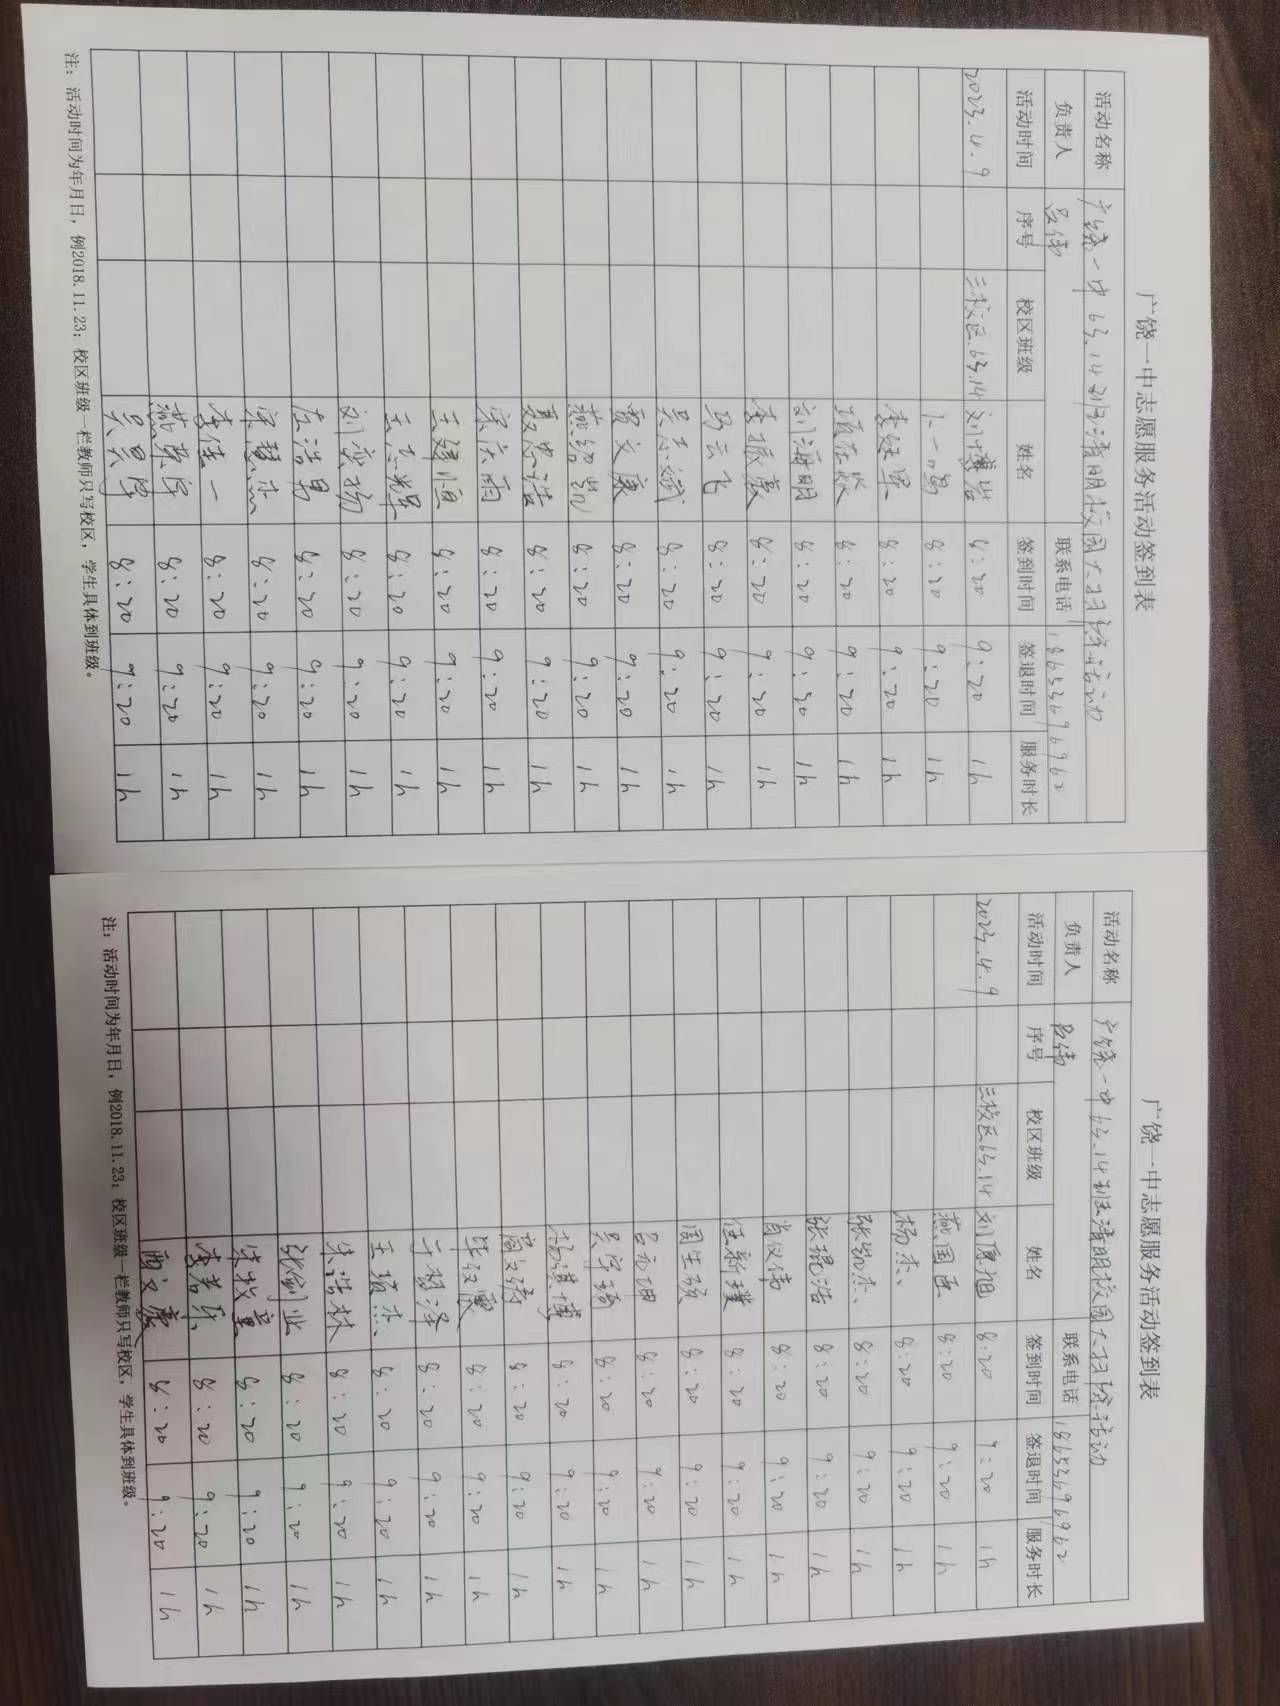 广饶一中志愿服务活动签到表
活动名称 广饶一中63.14班清明校园大扫除活动
负责人 吕伟 联系电话 18653696962
活动时间 序号 校区班级 姓名 签到时间 签退时间 服务时长
2023.4.9 三校区.63.14 刘博岩 8:20 9:20 1h
卜一鸣 8:20 9:20 1h
李经军 8:20 9:20 1h
项在欣 8:20 9:20 1h
刘海明 8:20 9:20 1h
李振豪 8:20 9:20 1h
马云飞 8:20 9:20 1h
吴志斌 8:20 9:20 1h
贾文康 8:20 9:20 1h
燕绍凯 8:20 9:20 1h
聂忠浩 8:20 9:20 1h
宋庆雨 8:20 9:20 1h
王隆恒 8:20 9:20 1h
王志耀 8:20 9:20 1h
刘奕扬 8:20 9:20 1h
左浩男 8:20 9:20 1h
宋慧杰 8:20 9:20 1h
李佳一 8:20 9:20 1h
燕英宇 8:20 9:20 1h
吴昊峰 8:20 9:20 1h
注：活动时间为年月日，例2018.11.23；校区班级一栏教师只写校区，学生具体到班级。
广饶一中志愿服务活动签到表
活动名称 广饶一中63.14班清明校园大扫除活动
负责人 吕伟 联系电话 18653696962
活动时间 序号 校区班级 姓名 签到时间 签退时间 服务时长
2023.4.9 三校区63.14 刘原旭 8:20 9:20 1h
燕国玉 8:20 9:20 1h
杨杰 8:20 9:20 1h
张凯杰 8:20 9:20 1h
张琨浩 8:20 9:20 1h
肖仪伟 8:20 9:20 1h
任新璞 8:20 9:20 1h
周生硕 8:20 9:20 1h
吕元坤 8:20 9:20 1h
吴学琦 8:20 9:20 1h
杨淇博 8:20 9:20 1h
寇文骑 8:20 9:20 1h
毕纹霞 8:20 9:20 1h
于智泽 8:20 9:20 1h
王硕杰 8:20 9:20 1h
朱浩林 8:20 9:20 1h
张創业 8:20 9:20 1h
宋牧童 8:20 9:20 1h
李若兵 8:20 9:20 1h
贾文豪 8:20 9:20 1h
注：活动时间为年月日，例2018.11.23；校区班级一栏教师只写校区，学生具体到班级。